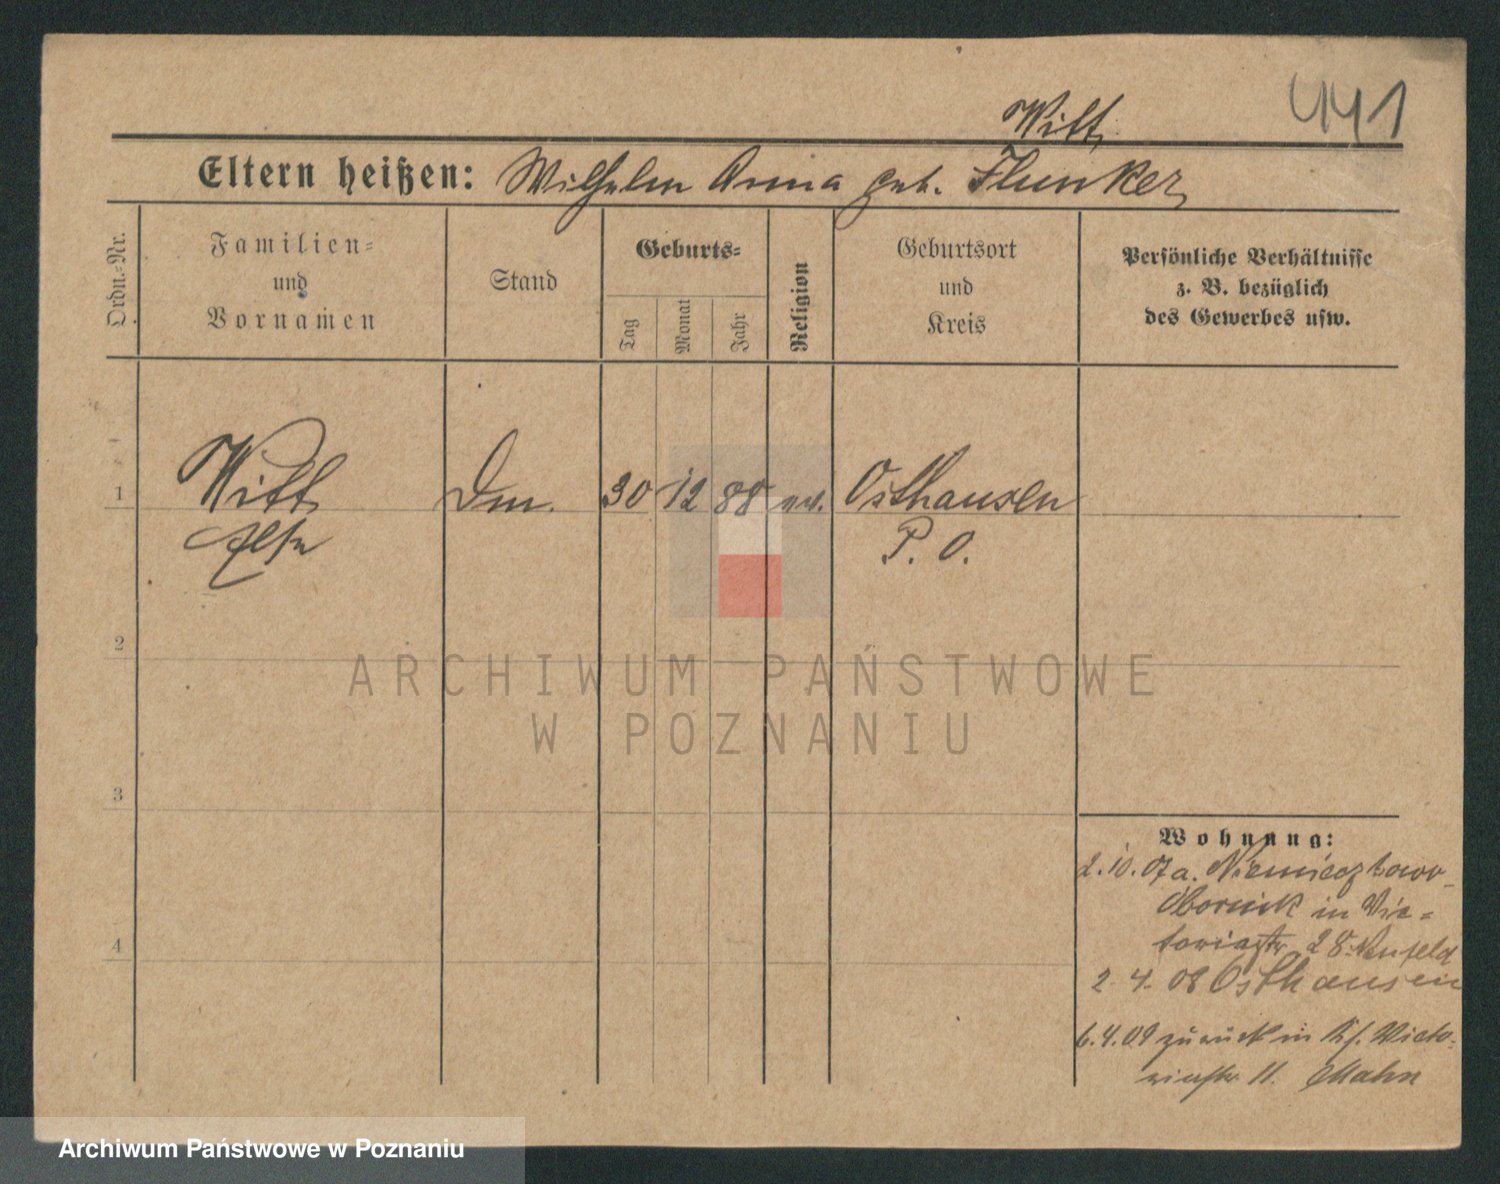 441
Witt
Eltern heißen: Wilhelm Anna geb. Flunker
Ordn.-Nr.
Familien-
und
Vornamen
Stand
Geburts-
Tag
Monat
Jahr
Religion
Geburtsort
und
Kreis
Persönliche Verhältnisse
z. B. bezüglich
des Gewerbes usw.
1 Witt Dm. 30 12 88 ev. Osthausen
P. O.
2
ARCHIWUM PAŃSTWOWE
W POZNANIU
3
Wohnung:
2.10.07 a. Niemieczkowo
Obornik in Vic=
toriastr. 28 Neufeld
4
2. 4. 08 Osthausen
6.4.09 zurück in Kf. Victo-
riastr. 11. Mahn
Archiwum Państwowe w Poznaniu